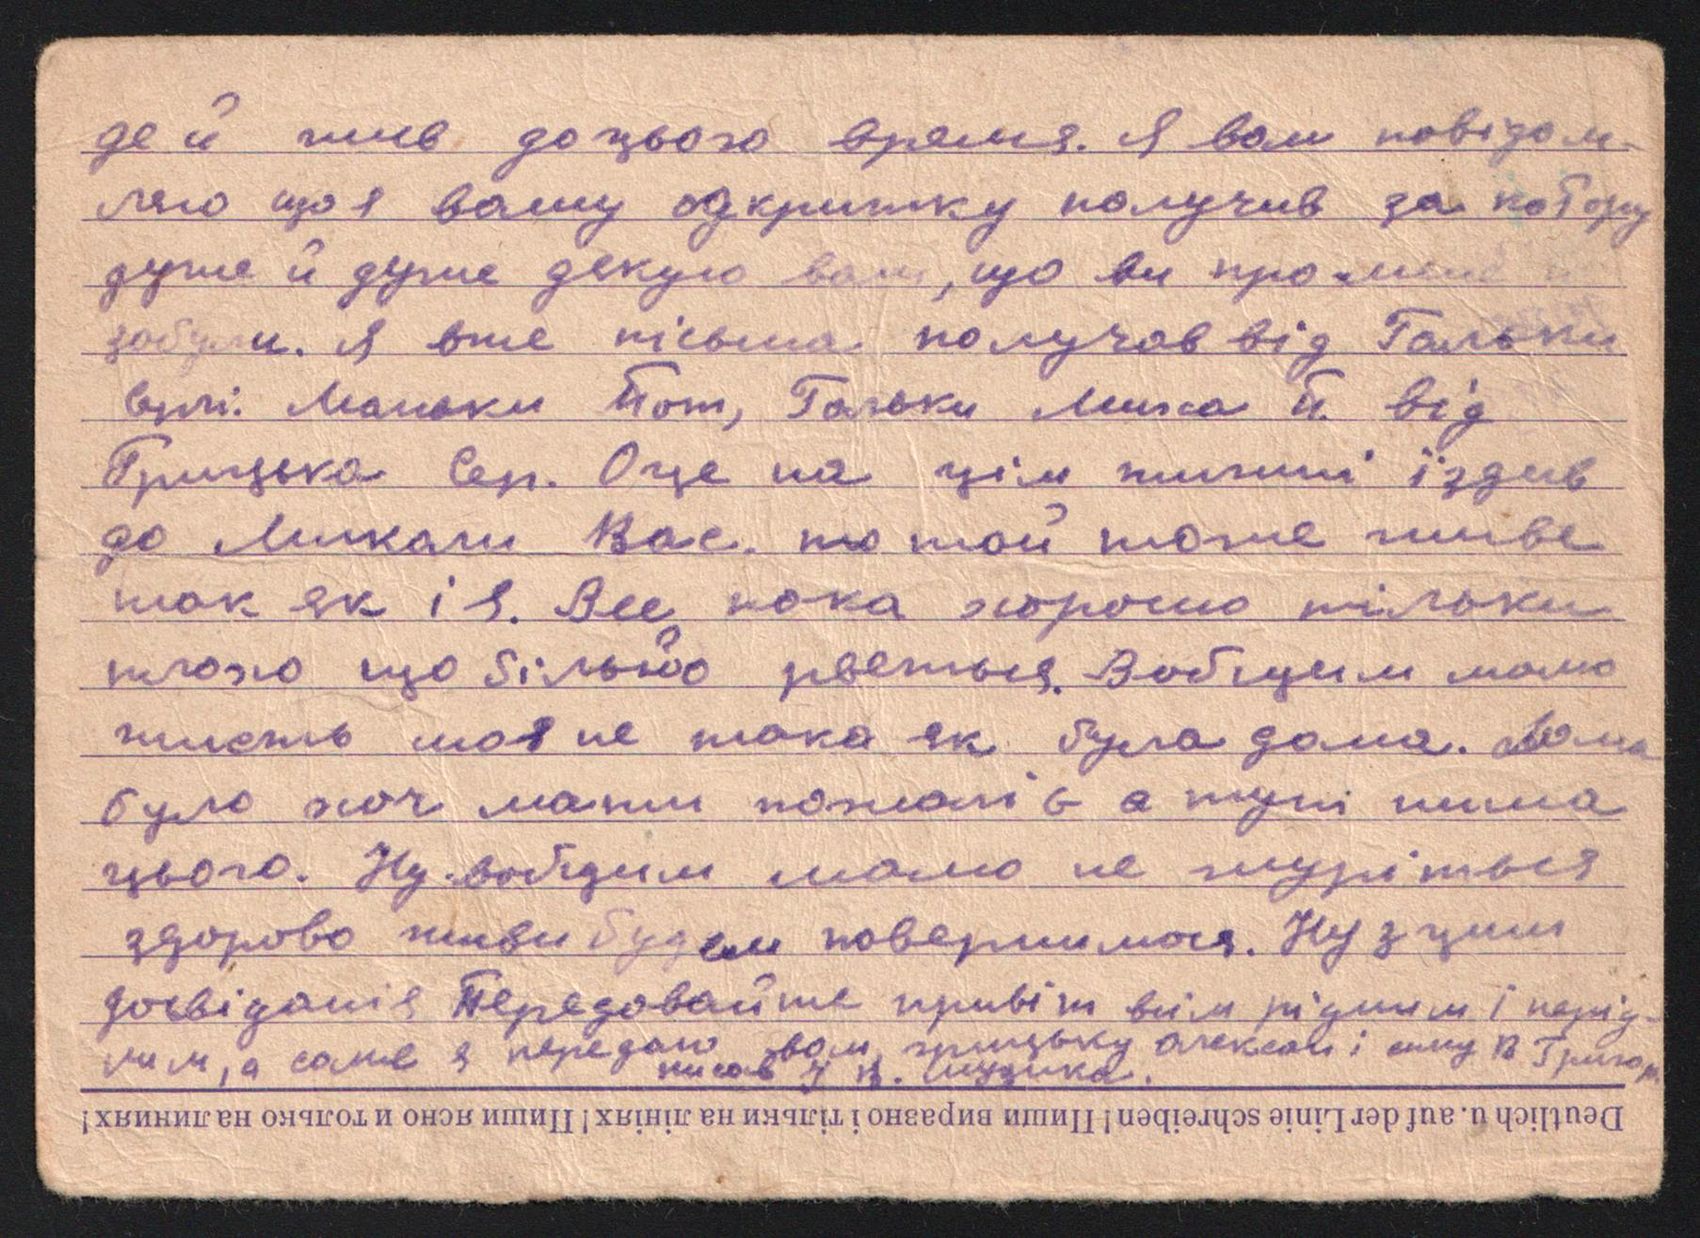 де й жив до цього время. Я вам повідом-
ляю що я вашу одкритку получив за котору
дуже й дуже дякую вам, що ви про мене не
забули. Я вже пісьма получав від Гальки
Маньки Гальки й від
Грицька Сер. Оце на цім тижні їздив
до Миколи Вас. то той тоже живе
так як і я. Все пока хорошо тільки
плохо що більйо рветься. Вобщем мамо
жисть моя не така як була дома. Дома
було хоч мати пожаліє а тут нима
цього. Ну вобщим мамо не журіться
здорово живи будем повернимося. Ну з цим
досвіданія Передовайте привіт всім рідним і нерід-
ним, а саме я передаю вам, Грицьку і сину
писав
Deutlich u. auf der Linie schreiben! Пиши виразно і тільки на лініях! Пиши ясно и только на линиях!